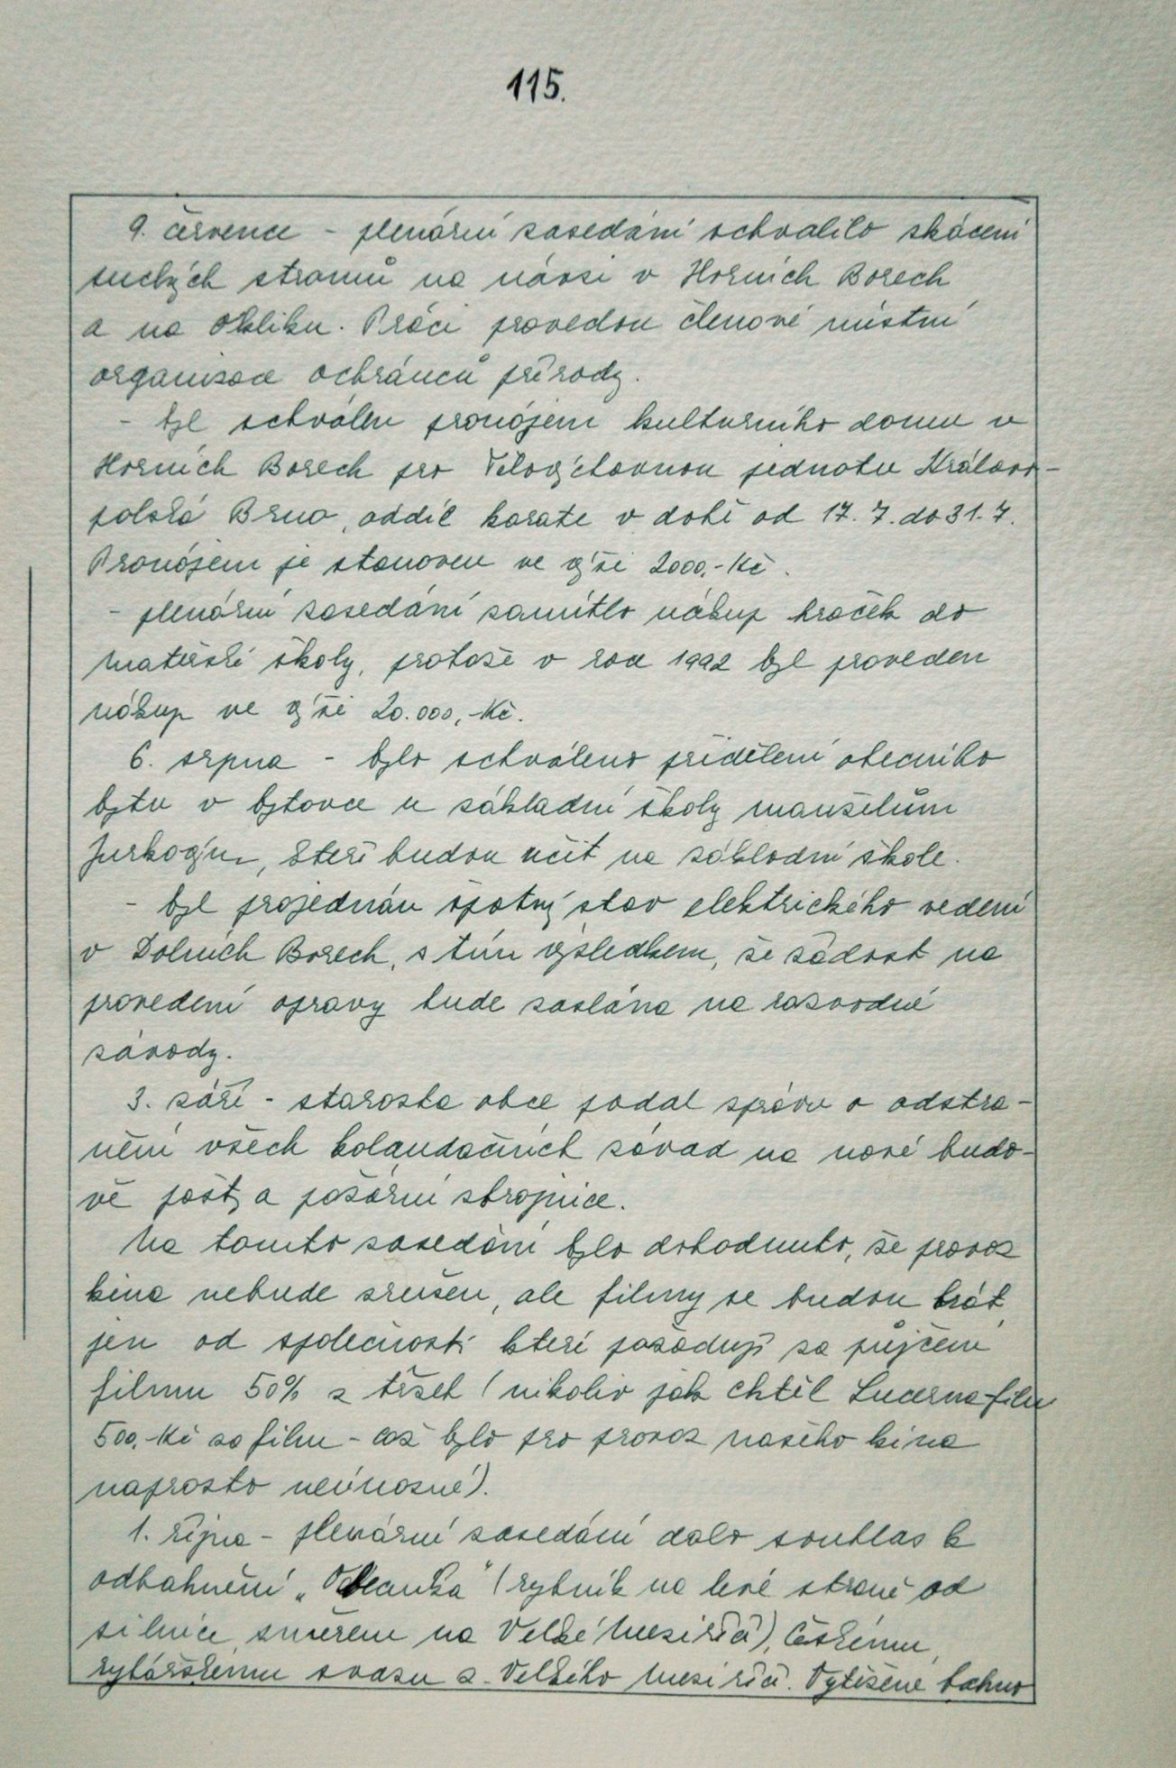 115.
9. července - plenární zasedání schválilo skácení
suchých stromů na návsi v Horních Borech
a na Okliku. Práci provedou členové místní
organizace ochránců přírody.
- byl schválen pronájem kulturního domu v
Horních Borech pro Tělovýchovnou jednotu Královo-
polská Brno, oddíl karate v době od 17. 7. do 31. 7.
Pronájem je stanoven ve výši 2000,- Kč.
- plenární zasedání zamítlo nákup hraček do
mateřské školy, protože v roce 1992 byl proveden
nákup ve výši 20.000,-Kč.
6. srpna - bylo schváleno přidělení obecního
bytu v bytovce u základní školy manželům
Jurkovým, kteří budou učit na základní škole.
- byl projednán špatný stav elektrického vedení
v Dolních Borech, s tím výsledkem, že žádost na
provedení opravy bude zaslána na rozvodné
závody.
3. září - starosta obce podal zprávu o odstra-
nění všech kolaudačních závad na nové budo-
vě pošty a požární zbrojnice.
Na tomto zasedání bylo dohodnuto, že provoz
kina nebude zrušen, ale filmy se budou brát
jen od společností které požadují za půjčení
filmu 50% z tržeb (nikoliv jak chtěl Lucerna-film
500,-Kč za film - což bylo pro provoz našeho kina
naprosto neúnosné).
1. října - plenární zasedání dalo souhlas k
odbahnění " (rybník na levé straně od
silnice směrem na Velké Meziříčí), Českému
rybářskému svazu z Velkého Meziříčí. Vytěžené bahno